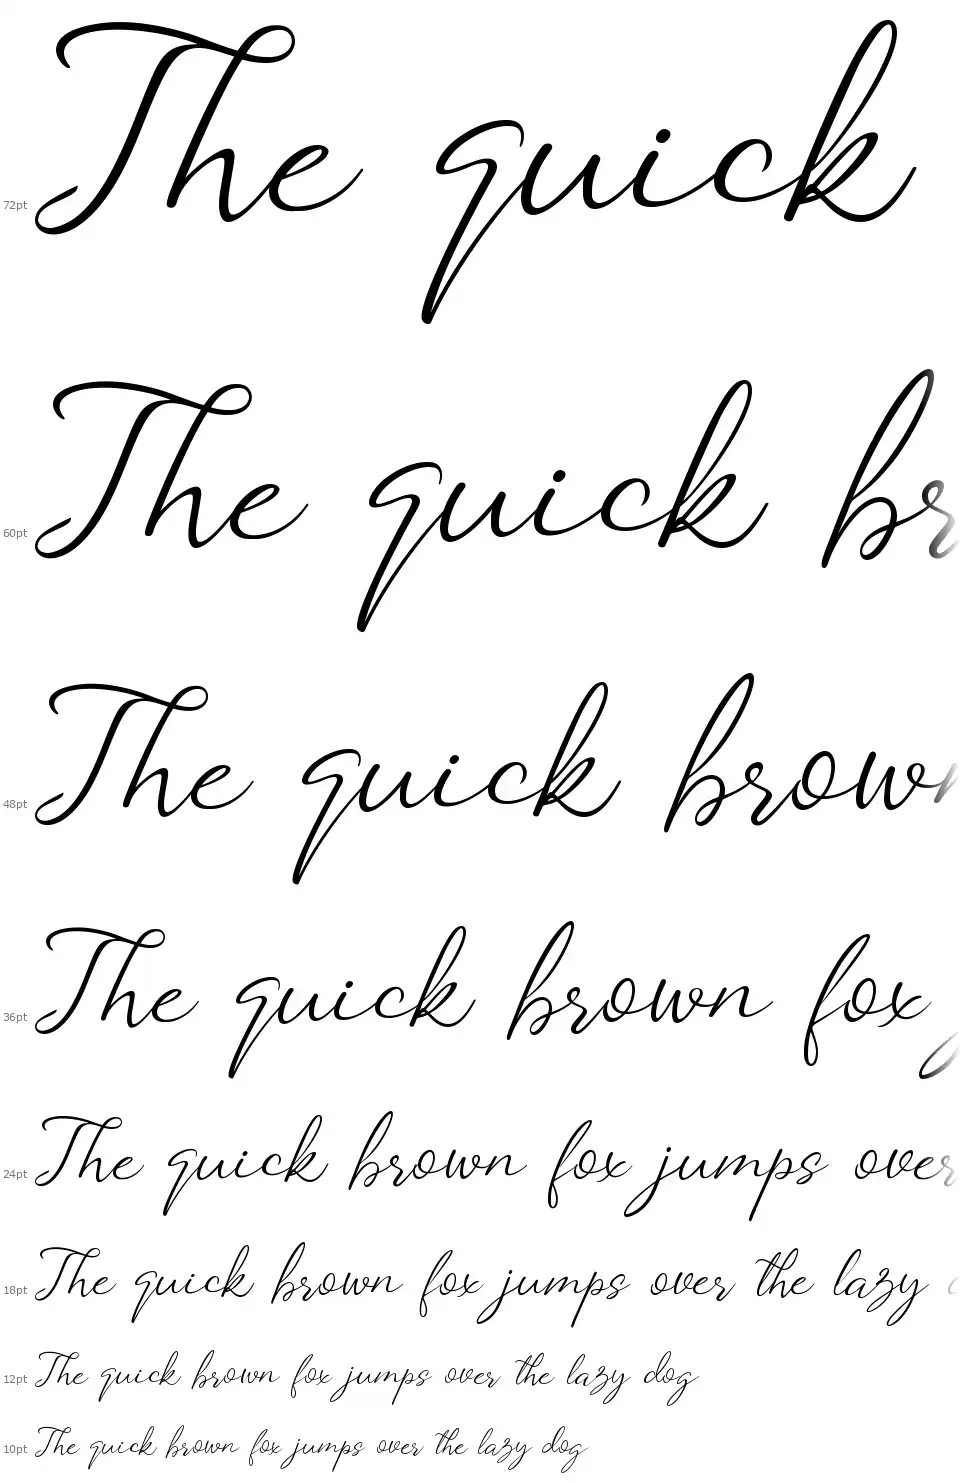 72pt The quick
60pt The quick br
48pt The quick brown
36pt The quick brown fox j
24pt The quick brown fox jumps over
18pt The quick brown fox jumps over the lazy
12pt The quick brown fox jumps over the lazy dog
10pt The quick brown fox jumps over the lazy dog